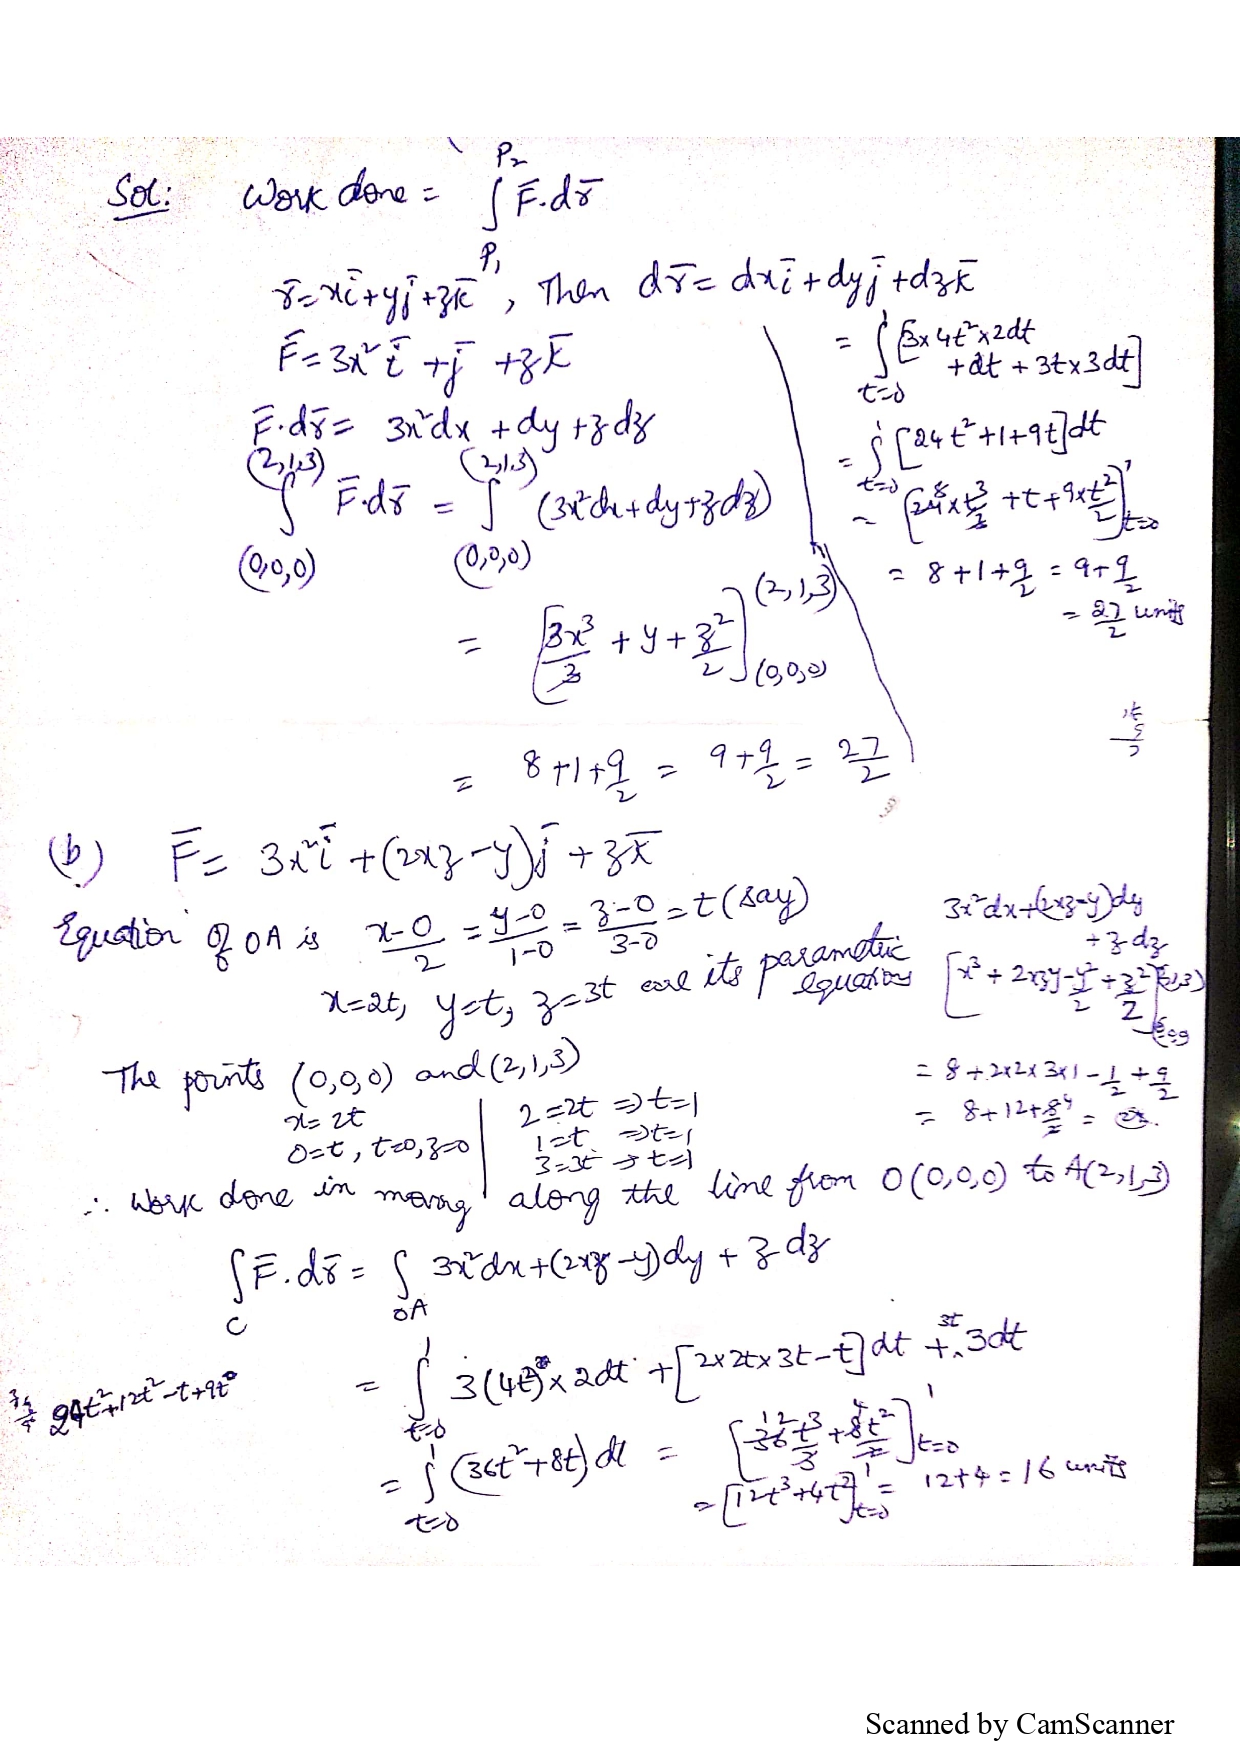 Sol: Work done = ∫_{P₁}^{P₂} F̄.dr̄
r̄ = xī+yj̄+zk̄, Then dr̄ = dxī+dyj̄+dzk̄
F̄ = 3x²ī + j̄ + zk̄
F̄.dr̄ = 3x²dx + dy + z dz
∫_{(0,0,0)}^{(2,1,3)} F̄.dr̄ = ∫_{(0,0,0)}^{(2,1,3)} (3x²dx+dy+zdz)
= [3x³/3 + y + z²/2]_{(0,0,0)}^{(2,1,3)}
= 8+1+9/2 = 9+9/2 = 27/2
= ∫_{t=0}^{1} [3×4t²×2dt
+dt + 3t×3dt]
= ∫_{t=0}^{1} [24t²+1+9t]dt
= [24 8×t³/3 + t + 9×t²/2]_{t=0}^{1}
= 8+1+9/2 = 9+9/2
= 27/2 units
(b) F̄ = 3x²ī + (2xz-y)j̄ + zk̄
Equation of OA is x-0/2 = y-0/1-0 = z-0/3-0 = t (say)
x=2t, y=t, z=3t are its parametric equations
3x²dx+(2xz-y)dy
+zdz
[x³ + 2xzy - y²/2 + z²/2]
= 8+2×2×3×1 - 1/2 + 9/2
= 8+12+8/2 4 =
The points (0,0,0) and (2,1,3)
x=2t
0=t, t=0, z=0
2=2t ⇒ t=1
1=t ⇒ t=1
3=3t ⇒ t=1
∴ Work done in moving along the line from O(0,0,0) to A(2,1,3)
∫_C F̄.dr̄ = ∫_{OA} 3x²dx+(2xz-y)dy + z dz
= ∫_{t=0}^{1} 3(4t²)×2dt + [2×2t×3t-t]dt + 3t.3dt
24t²+12t²-t+9t
= ∫_{t=0}^{1} (36t²+8t)dt = [36 12 t³/3 + 8 4 t²/2]_{t=0}^{1}
= [12t³+4t²]_{t=0}^{1} = 12+4 = 16 units
Scanned by CamScanner